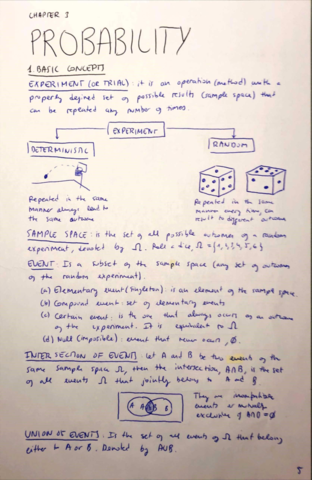 CHAPTER 1
PROBABILITY
1. BASIC CONCEPTS
EXPERIMENT (OR TRIAL): it is an operation (method) with a
properly defined set of possible results (sample space) that
can be repeated any number of times.
EXPERIMENT
DETERMINISTIC
RANDOM
Repeated in the same
manner always lead to
the same outcome
Repeated in the same
manner every time, can
result to different outcome
SAMPLE SPACE: is the set of all possible outcomes of a random
experiment, denoted by Ω. Roll a die, Ω = {1,2,3,4,5,6}
EVENT: Is a subset of the sample space (any set of outcomes
of the random experiment).
(a) Elementary event (singleton): is an element of the sample space.
(b) Compound event: set of elementary events
(c) Certain event: is the one that always occurs as an outcome
of the experiment. It is equivalent to Ω
(d) Null (impossible): event that never occurs, Ø.
INTERSECTION OF EVENTS: Let A and B be two events of the
same sample space Ω, then the intersection, A∩B, is the set
of all events Ω that jointly belong to A and B
A A∩B B
They are incompatible
events or mutually
exclusive if A∩B=Ø
UNION OF EVENTS: Is the set of all events of Ω that belong
either to A or B. Denoted by A∪B.
5